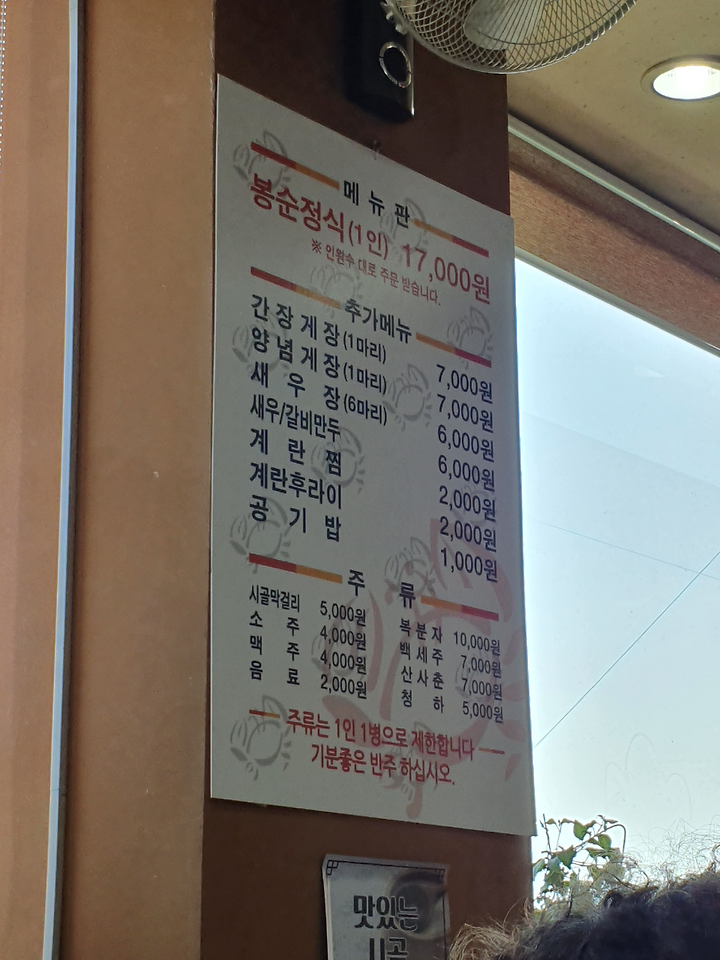 메뉴판
봉순정식(1인) 17,000원
※ 인원수 대로 주문 받습니다.
추가메뉴
간장게장(1마리) 7,000원
양념게장(1마리) 7,000원
새우장(6마리) 6,000원
새우/갈비만두 6,000원
계란찜 2,000원
계란후라이 2,000원
공기밥 1,000원
주류
시골막걸리 5,000원
소주 4,000원
맥주 4,000원
음료 2,000원
복분자 10,000원
백세주 7,000원
산사춘 7,000원
청하 5,000원
주류는 1인 1병으로 제한합니다
기분좋은 반주 하십시오.
맛있는
시골